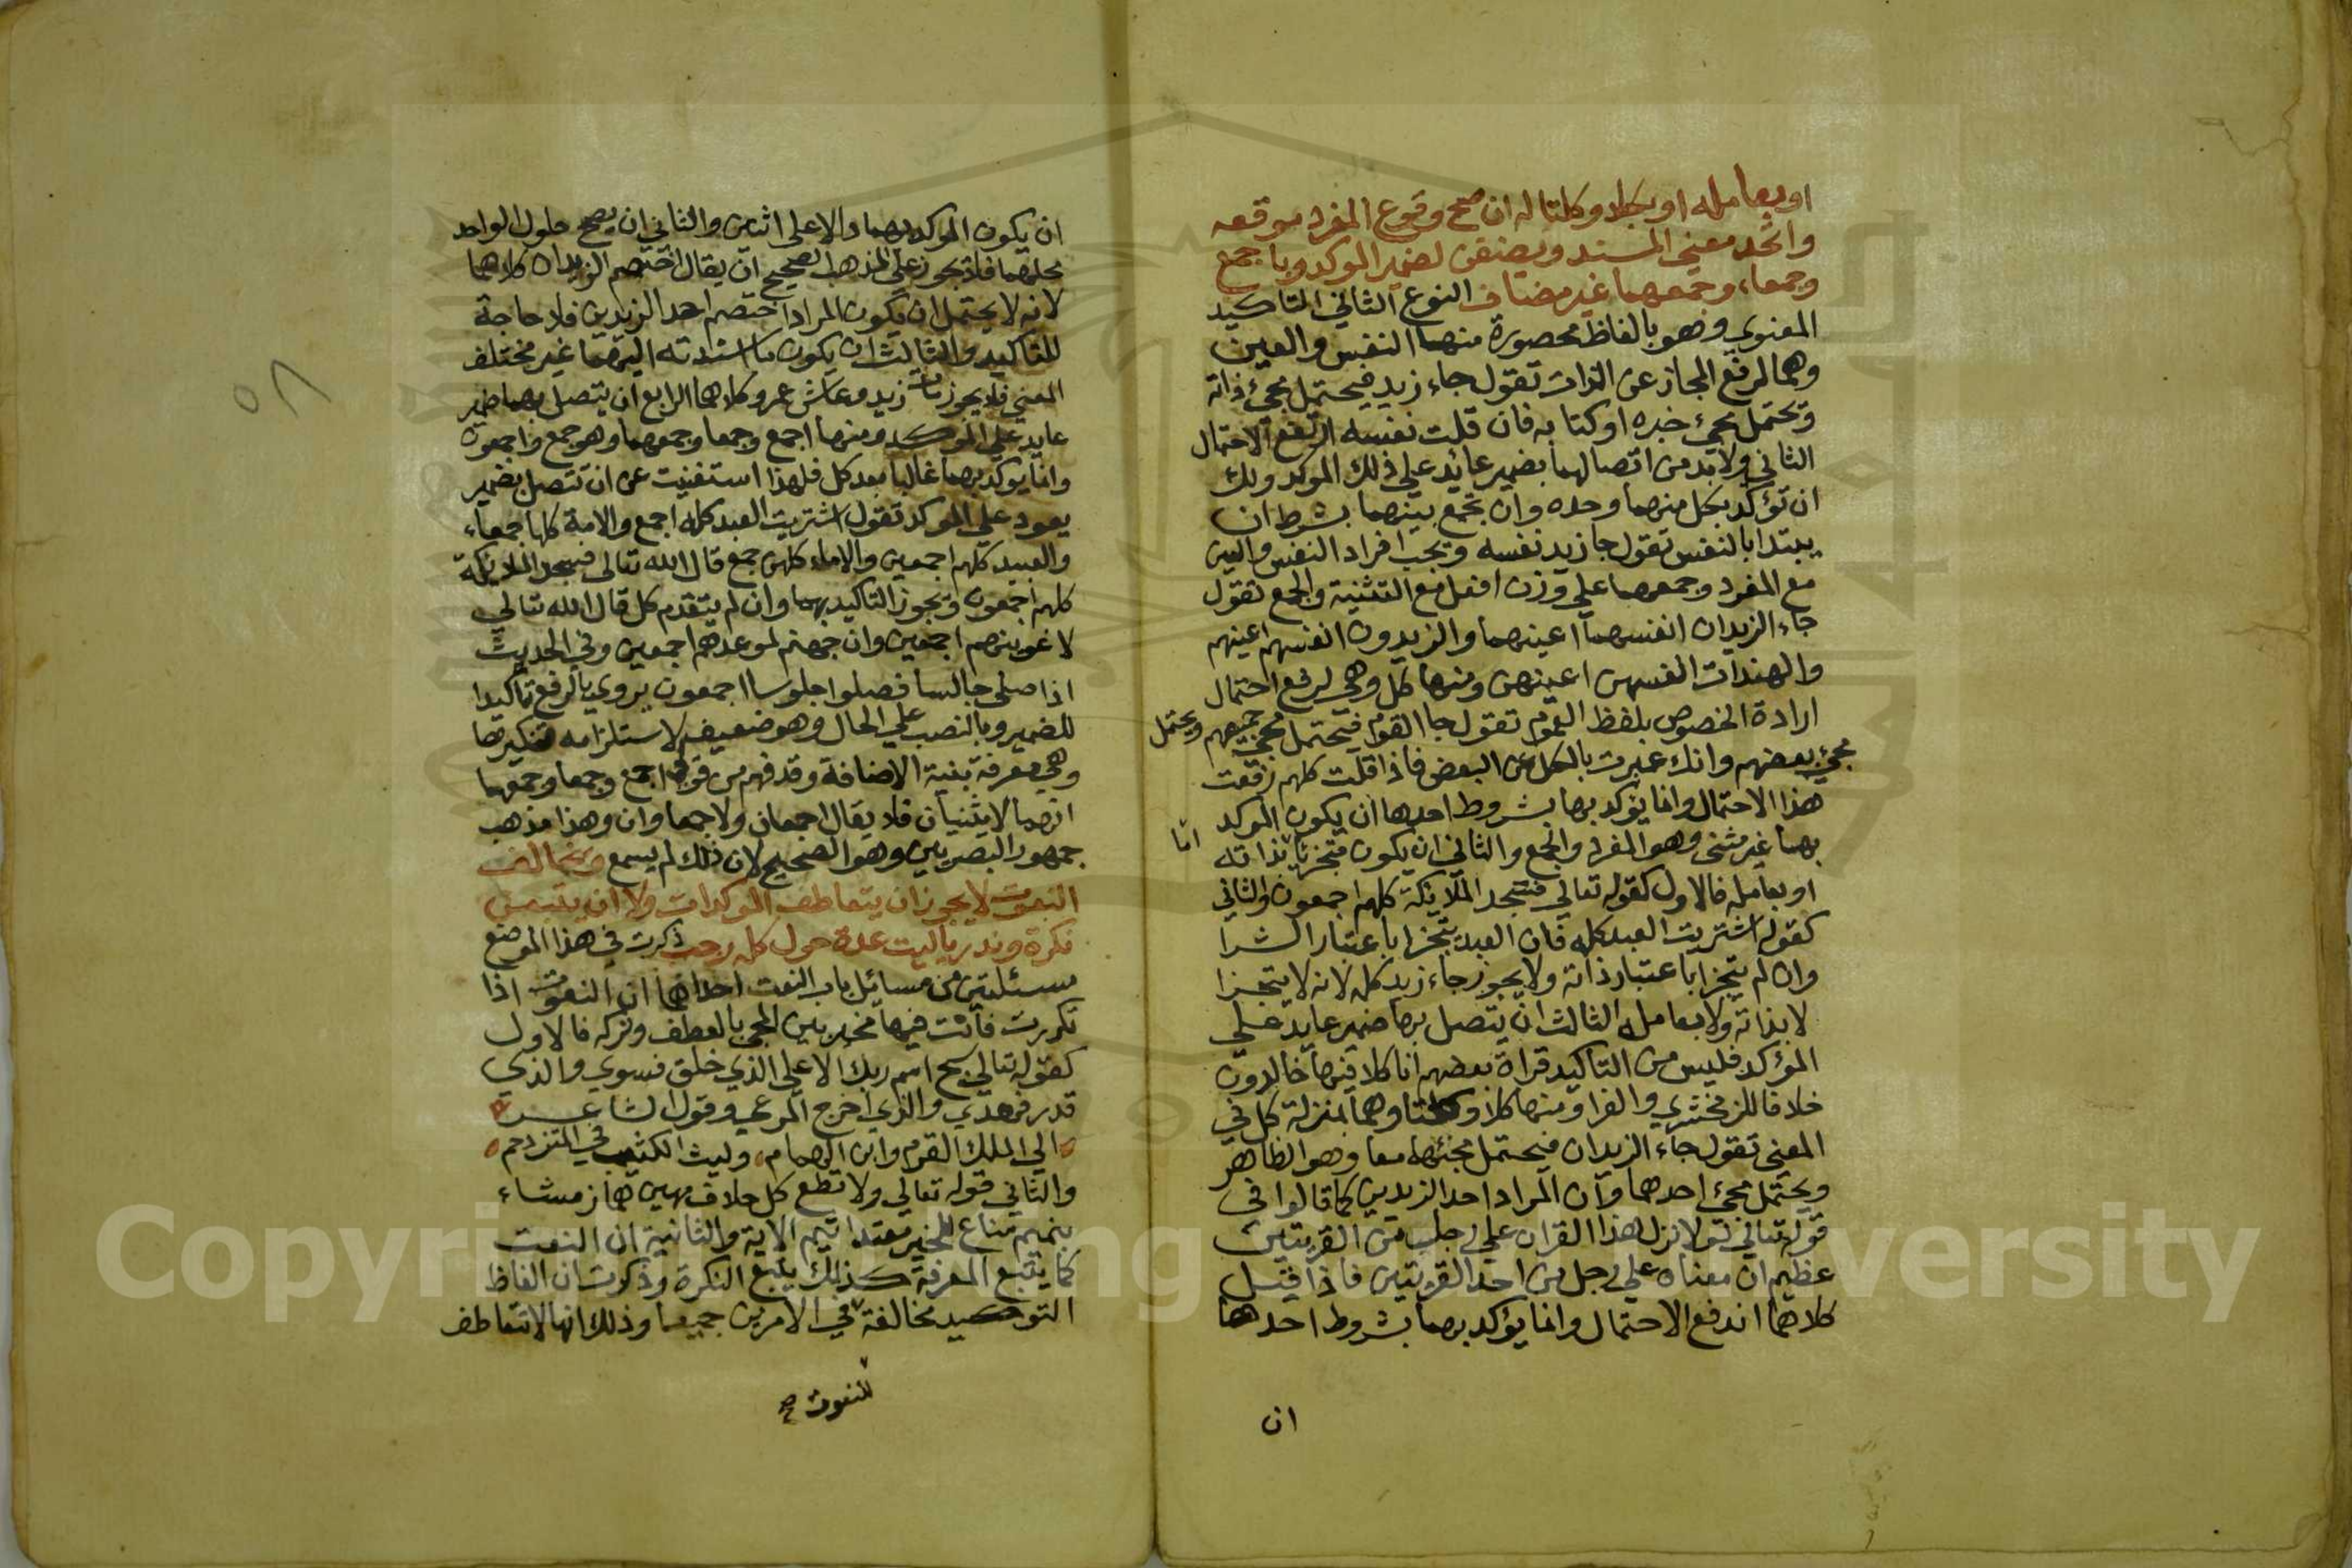 او بعامله او بكلا وكلتا له ان صح وقوع المفرد موقعه
واتحد معني المسند ويضفن لضمير الموكد وباجمع
وجمعاء وجمعهما غير مضاف النوع الثاني التاكيد
المعنوي وهو بالفاظ محصورة منها النفس والعين
وهما لرفع المجاز عن الذات تقول جاء زيد فيحتمل مجئ ذاته
وتحتمل مجئ خبره او كتابه فان قلت نفسه ارتفع الاحتمال
الثاني ولابد من اتصالهما بضمير عائد علي ذلك الموكد ولك
ان تؤكد بكل منهما وحده وان تجمع بينهما بشرط ان
يبتدا بالنفس تقول جا زيد نفسه ويجب افراد النفس والعين
مع المفرد وجمعهما علي وزن افعل مع التثنية والجمع تقول
جاء الزيدان انفسهما اعينهما والزيدون انفسهم اعينهم
والهندات انفسهن اعينهن ومنها كل وهي لرفع احتمال
ارادة الخصوص بلفظ العموم تقول جا القوم فيحتمل مجئ جميعهم ويحتمل
مجئ بعضهم وانك عبرت بالكل عن البعض فاذا قلت كلهم رفعت
هذا الاحتمال وانما يؤكد بها بشروط احدها ان يكون الموكد
بهما غير مثني وهو المفرد والجمع والثاني ان يكون متجزيا بذاته
اما
او بعامله فالاول كقوله تعالي فسجد الملائكة كلهم اجمعون والثاني
كقوله اشتريت العبد كله فان العبد يتجزا باعتبار الشرا
وان لم يتجزا باعتبار ذاته ولا يجوز جاء زيد كله لانه لا يتجزا
لا بذاته ولا بعامله الثالث ان يتصل بها ضمير عايد علي
المؤكد فليس من التاكيد قراة بعضهم انا كلا فيها خالدون
خلافا للزمخشري والفرا ومنها كلا وكلتا وهما بمنزلة كل في
المعني تقول جاء الزيدان فيحتمل مجئهما معا وهو الظاهر
ويحتمل مجئ احدهما وان المراد احد الزيدين كما قالوا في
قوله تعالي لولا نزل هذا القران علي رجل من القريتين
عظيم ان معناه علي رجل من احد القريتين فاذا قيل
كلاهما اندفع الاحتمال وانما يؤكد بهما بشروط احدها
ان
ان يكون الموكد بهما دالا علي اثنين والثاني ان يصح حلول الواحد
محلهما فلا يجوز علي المذهب الصحيح ان يقال اختصم الزيدان كلاهما
لانه لا يحتمل ان يكون المراد اختصم احد الزيدين فلا حاجة
للتاكيد والثالث ان يكون ما اسندته اليهما غير مختلف
المعني فلا يجوز مات زيد وعاش عمرو كلاهما الرابع ان يتصل بهما ضمير
عايد علي الموكد ومنها اجمع وجمعا وجمعهما وهو جمع واجمعون
وانما يوكد بهما غالبا بعد كل فلهذا استغنيت عن ان تتصل بضمير
يعود علي الموكد تقول اشتريت العبد كله اجمع والامة كلها جمعاء
والعبيد كلهم اجمعين والاماء كلهن جمع قال الله تعالي فسجد الملائكة
كلهم اجمعون ويجوز التاكيد بهما وان لم يتقدم كل قال الله تعالي
لاغوينهم اجمعين وان جهنم لموعدهم اجمعين وفي الحديث
اذا صلي جالسا فصلوا جلوسا اجمعون يروي بالرفع تاكيدا
للضمير وبالنصب علي الحال وهو ضعيف لاستلزامه تنكيرها
وهي معرفة بنية الاضافة وقد فهم من قولي اجمع وجمعا وجمعهما
انهما لا يثنيان فلا يقال اجمعان ولا جمعاوان وهذا مذهب
جمهور البصريين وهو الصحيح لان ذلك لم يسمع وبخالف
النعوت لا يجوز ان يتعاطف الموكدات ولا ان يتبعن
نكرة وندر ياليت عدة حول كله رجب ذكرت في هذا الموضع
مسئلتين من مسائل باب النعت احداهما ان النعوت اذا
تكررت فانت فيها مخير بين المجئ بالعطف وتركه فالاول
كقوله تعالي سبح اسم ربك الاعلي الذي خلق فسوي والذي
قدر فهدي والذي اخرج المرعي وقول الشاعر
الي الملك القرم وابن الهمام وليث الكتيبة في المزدحم
والثاني قوله تعالي ولا تطع كل حلاف مهين هماز مشاء
بنميم مناع للخير معتد اثيم الاية والثانية ان النعت
كما يتبع المعرفة كذلك يتبع النكرة وذكرت ان الفاظ
التوكيد مخالفة في الامرين جميعا وذلك انها لا تتعاطف
للنعوت صح
٥٨
Copyri ng versity